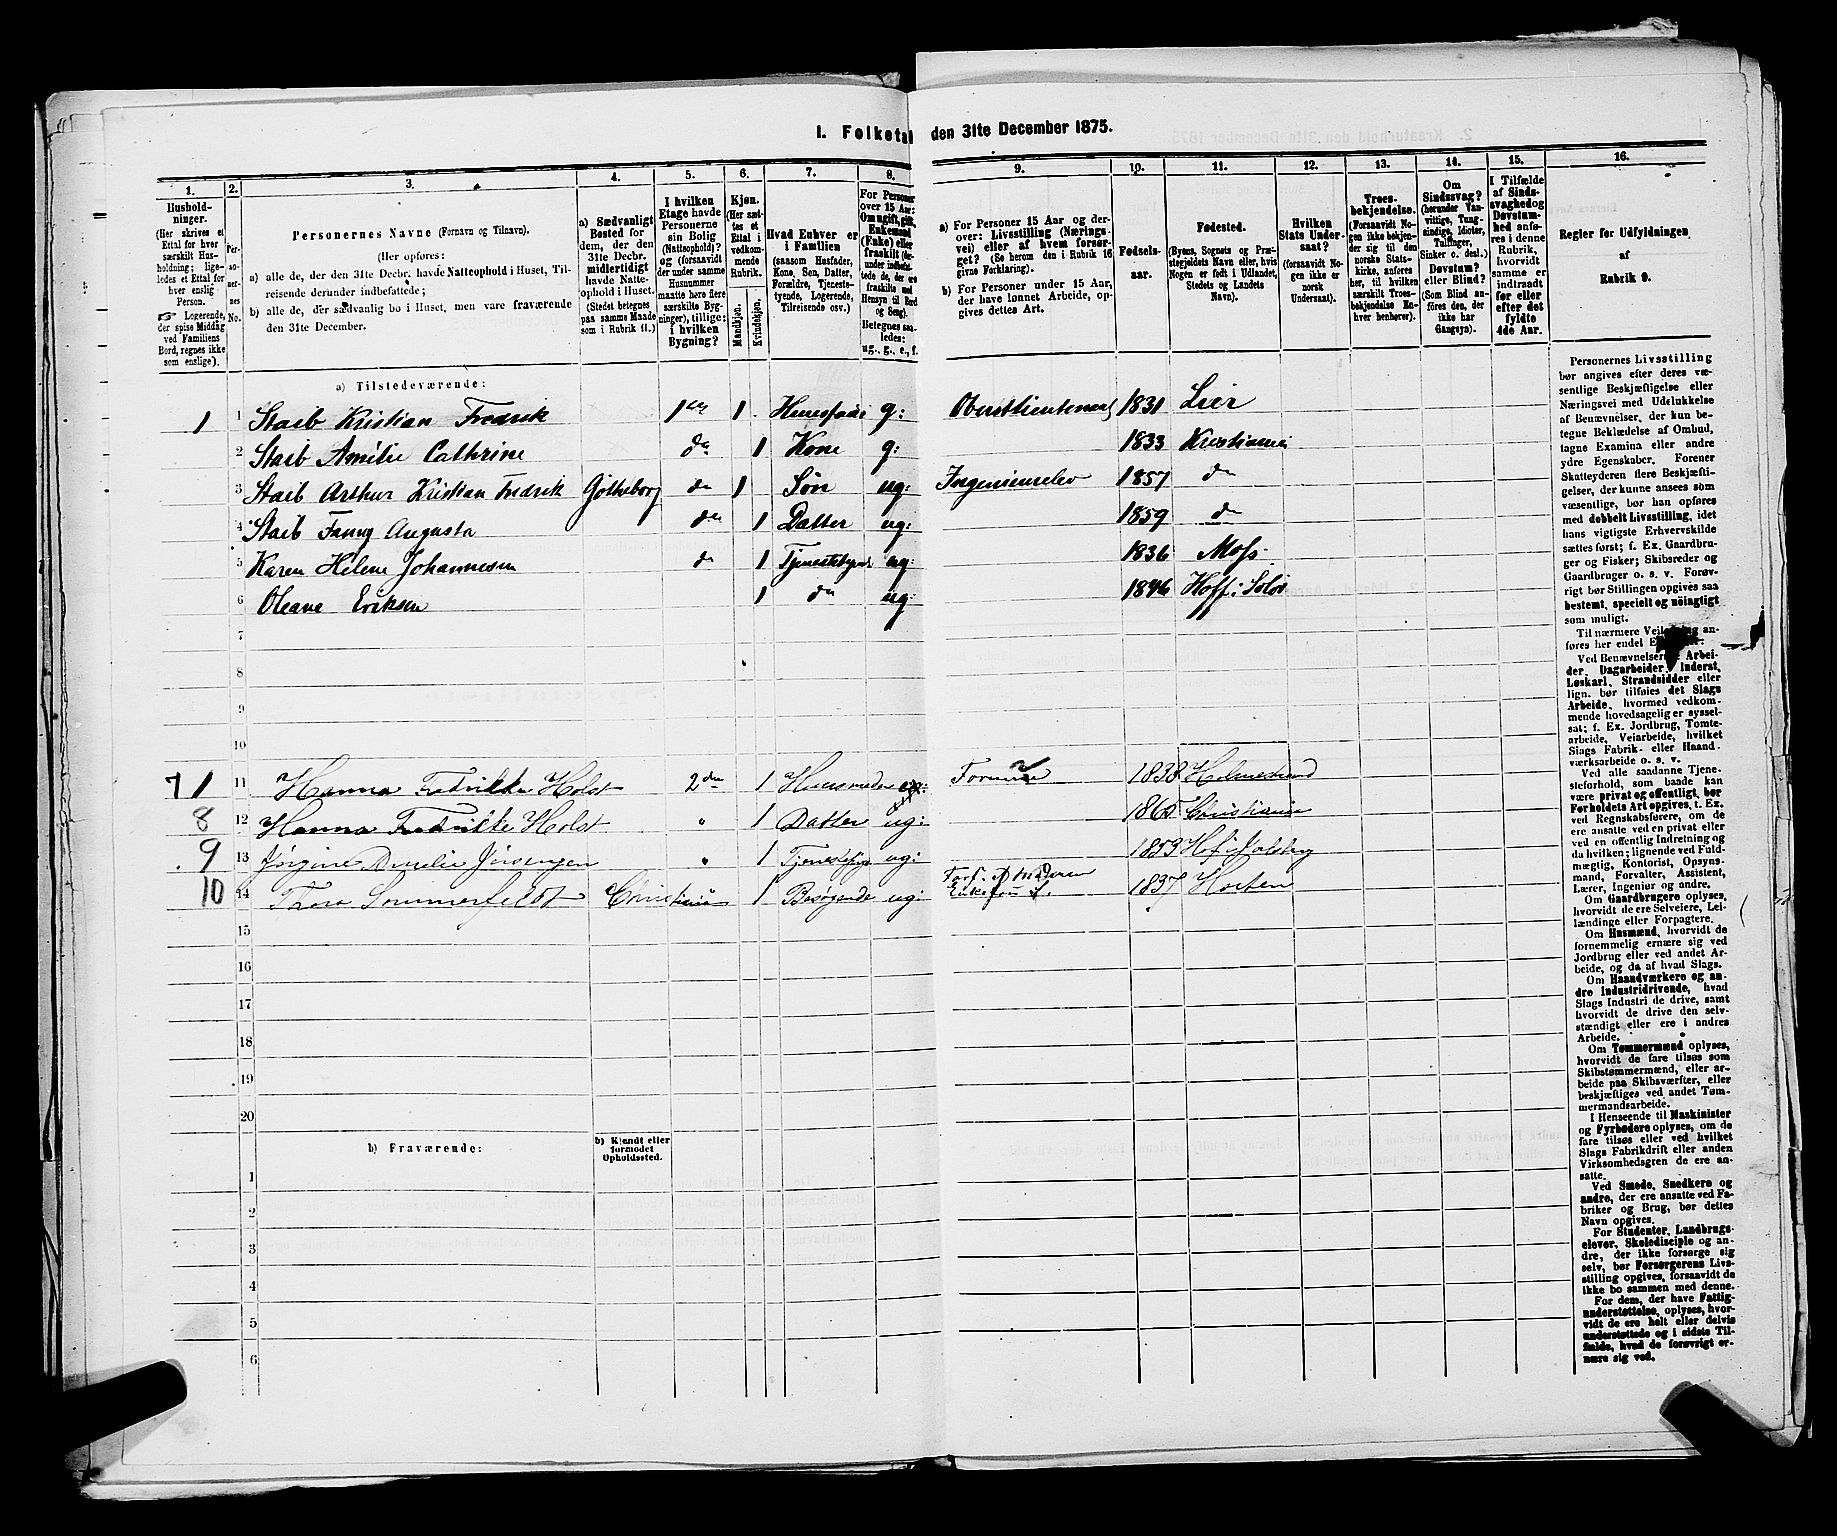 I. Folketal den 31te December 1875.
1. 2. 3. 4. 5. 6. 7. 8. 9. 10. 11. 12. 13. 14. 15. 16.
Hushold-
ninger.
(Her skrives et
Ettal for hver
særskilt Hus-
holdning; lige-
ledes et Ettal for
hver enslig
Person.
☞ Logerende,
der spise Middag
ved Familiens
Bord, regnes ikke
som enslige).
Per-
so-
ner-
nes
No.
Personernes Navne (Fornavn og Tilnavn).
(Her opføres:
a) alle de, der den 31te Decbr. havde Natteophold i Huset, Til-
reisende derunder indbefattede;
b) alle de, der sædvanlig bo i Huset, men vare fraværende
den 31te December.
a) Sædvanligt
Bosted for
dem, der den
31te Decbr.
midlertidigt
havde Natte-
ophold i Huset.
(Stedet betegnes
paa samme Maade
som i Rubrik 11.)
I hvilken
Etage havde
Personerne
sin Bolig
(Natteophold)?
og (forsaavidt
der under samme
Husnummer
maatte høre flere
særskilte Byg-
ninger), tillige:
i hvilken
Bygning?
Kjøn.
(Her sæt-
tes et
Ettal i
vedkom-
mende
Rubrik.
Mandkjøn.
Kvindekjøn.
Hvad Enhver er
i Familien
(saasom Husfader,
Kone, Søn, Datter,
Forældre, Tjeneste-
tyende, Logerende,
Tilreisende osv.)
For Personer
over 15 Aar:
Om ugift, gift,
Enkemand
(Enke) eller
fraskilt
Betegnes saa-
ledes:
ug., g., e., f.
a) For Personer 15 Aar og der-
over: Livsstilling (Nærings-
vei) eller af hvem forsør-
get? (Se herom den i Rubrik 16
givne Forklaring).
b) For Personer under 15 Aar,
der have lønnet Arbeide, op-
gives dettes Art.
Fødsels-
aar.
Fødested.
(Byens, Sognets og Præ-
stegjeldets Navn eller, hvis
Nogen er født i Udlandet,
Stedets og Landets
Navn).
Hvilken
Stats Under-
saat?
(forsaavidt No-
gen ikke er
norsk
Undersaat).
Troes-
bekjendelse.
(Forsaavidt No-
gen ikke bekjen-
der sig til den
norske Stats-
kirke, anføres
her, til hvilken
særskilt Troes-
bekjendelse En-
hver henhører).
Om
Sindssvag?
(herunder Van-
vittige, Tung-
sindige, Idioter,
Tullinger,
Sinker o. desl.)
Døvstum?
eller Blind?
(Som Blind an-
føres den, der
ikke har
Gangsyn).
I Tilfælde
af Sinds-
svaghed og
Døvstum-
hed anfø-
res i denne
Rubrik,
hvorvidt
samme er
indtraadt
før eller
efter det
fyldte
4de Aar.
Regler for Udfyldningen
af
Rubrik 9.
a) Tilstedeværende:
1 1 Staib Kristian Fredrik 1ste 1 Huusfader g: Oberstlieutenant 1831 Lier
2 Staib Amélie Cathrine do 1 Kone g: 1833 Kristiania
3 Staib Arthur Kristian Fredrik Gøtheborg do 1 Søn ug: Ingeniørelev 1857 do
4 Staib Fanny Augusta do 1 Datter ug: 1859 do
5 Karen Helene Johannesen do 1 Tjenestetyende ug: 1836 Moss
6 Oleane Eriksen 1 do ug: 1846 Hoff i Solør
7
8
9
10
7 1 11 Hanna Fredrikke Holst 2den 1 Huusmoder Formue 1838 Holmestrand
8 12 Hanna Fredrikke Holst " 1 Datter ug: 1865 Christiania
9 13 Jørgine Amelie Jørgensen " 1 ug: 1853
10 14 Thora Sommerfeldt Christiania 1 Besøgende ug: Fors. af Moderen
Enkefru S. 1837 Horten
15
16
17
18
19
20
b) Fraværende: b) Kjendt eller
formodet
Opholdssted.
1
2
3
4
5
6
Personernes Livsstilling
bør angives efter deres væ-
sentlige Beskjæftigelse eller
Næringsvei med Udelukkelse
af Benævnelser, der kun be-
tegne Beklædelse af Ombud,
tagne Examina eller andre
ydre Egenskaber. Forener
Skatteyderen flere Beskjæfti-
gelser, der kunne ansees som
væsentlige, bør han opføres
med dobbelt Livsstilling, idet
hans vigtigste Erhvervskilde
sættes først; f. Ex. Gaardbru-
ger og Fisker; Skibsreder og
Gaardbruger o. s. v. Forøv-
rigt bør Stillingen opgives saa
bestemt, specielt og nöiagtigt
som muligt.
Til nærmere Veiledning an-
føres her endel
Ved Benævnelserne Arbei-
der, Dagarbeider, Inderst,
Løskarl, Strandsidder eller
lign. bør tilføies det Slags
Arbeide, hvormed vedkom-
mende hovedsagelig er syssel-
sat; f. Ex. Jordbrug, Tomte-
arbeide, Veiarbeide, hvilket
Slags Fabrik- eller Haand-
værksarbeide o. s. v.
Ved alle saadanne Tjene-
steforhold, som baade kan
være privat og offentligt, bør
Forholdets Art opgives, t. Ex.
ved Regnskabsførere, om de
ere ansatte ved en privat eller
ved en offentlig Indretning og
da hvilken; lignende ved Fuld-
mægtig, Kontorist, Opsyns-
mand, Forvalter, Assistent,
Lærer, Ingeniør og andre.
Om Gaardbrugere oplyses,
hvorvidt de ere Selveiere, Lei-
lændinge eller Forpagtere.
Om Husmænd, hvorvidt de
fornemmelig ernære sig ved
Jordbrug eller ved andet Ar-
beide, og da af hvad Slags.
Om Haandværkere og an-
dre Industridrivende, hvad
Slags Industri de drive, samt
hvorvidt de drive den selv-
stændigt eller ere i andres
Arbeide.
Om Tømmermænd oplyses,
hvorvidt de fare tilsøs som
Skibstømmermænd, eller ar-
beide paa Skibsværfter, eller
beskjæftiges ved andet Tøm-
mermandsarbeide.
I Henseende til Maskinister
og Fyrbødere oplyses, om de
fare tilsøs eller ved hvilket
Slags Fabrikdrift eller anden
Virksomhedsgren de ere an-
satte.
Ved Smede, Snedkere og
andre, der ere ansatte ved Fa-
briker og Brug, bør dettes
Navn opgives.
For Studenter, Landbrugs-
elever, Skoledisciple og an-
dre, der ikke forsørge sig
selv, bør Forsørgerens Livs-
stilling opgives, forsaavidt de
ikke bo sammen med denne.
For dem, der have Fattig-
understøttelse, oplyses, hvor-
vidt de ere helt eller delvis
understøttede og i sidste Til-
fælde, hvad de forøvrigt er-
nære sig ved.